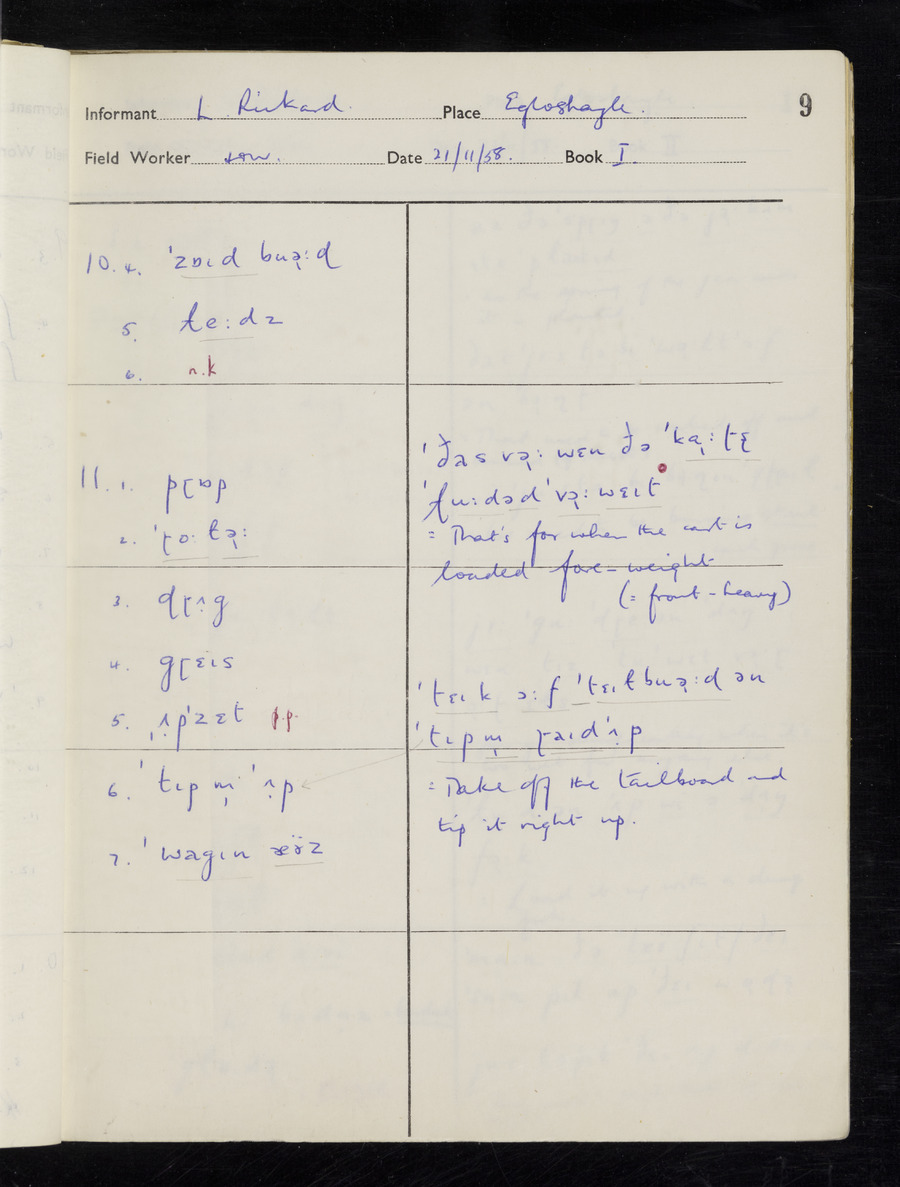 Informant L. Rickard. Place Egloshayle. 9
Field Worker Date 21/11/58. Book I.
10. 4. ˈzɒɩd buə̣ːd
5. ɫeːdz
6. n.k
11. 1. pɽɒp
2. ˈɽoˑɫə̣ː
3. dɽʌg
4. gɽɛɩs
5. ˌʌ̣pˈzɛt p.p.
6. ˈtɩp m̩ ˈʌ̣p
7. ˈwagɩn æöz
ˈðas və̣ː wɛn ðə ˈkạːtɛ̨
ˈɫuːdəd ˈvə̣ːwɛɩt
= That's for when the cart is
loaded fore-weight
(= front-heavy)
ˈtɛɩk ɔːf ˈtɛɩɫbuə̣ːd ən
ˈtɩp m̩ ɽaɩdˈʌ̣p
= Take off the tailboard and
tip it right up.